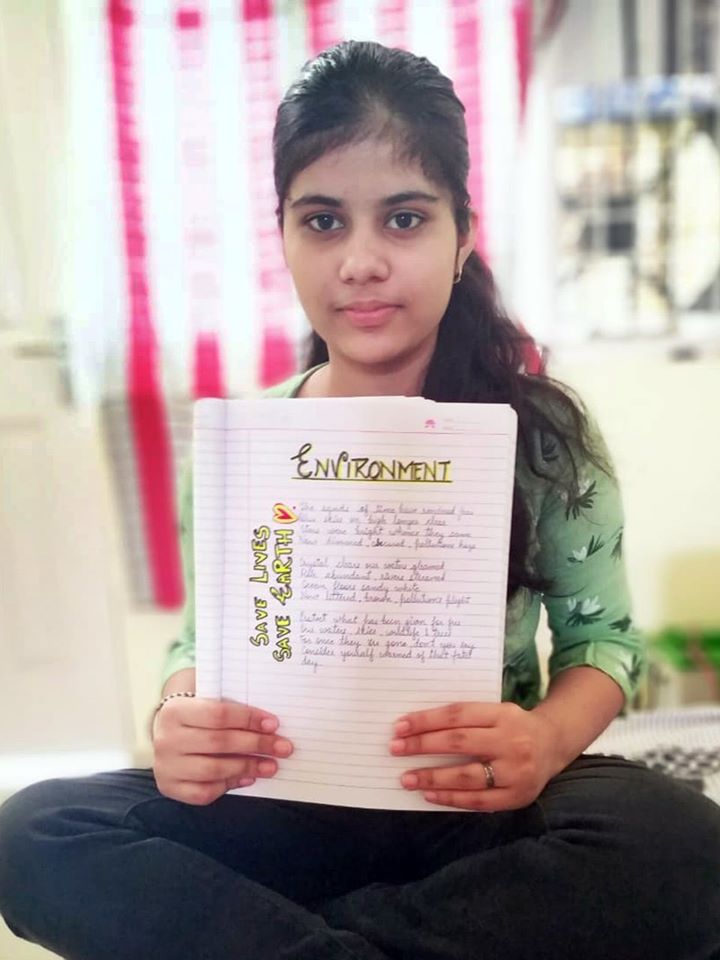 ENVIRONMENT
SAVE LIVES
SAVE EARTH
The sands of time have rendered fear
Blue skies on high longer clear
Stars were bright whence they came
Now dimmed, obscured, pollutions haze
Crystal clear our waters gleamed
Fish abundant, rivers streamed
Ocean floors sandy white
Now littered, brown, pollutions plight
Protect what has been given for free
Our waters, skies, wildlife & trees
For once they are gone, don't you say
Consider yourself warned of that fatal
day.